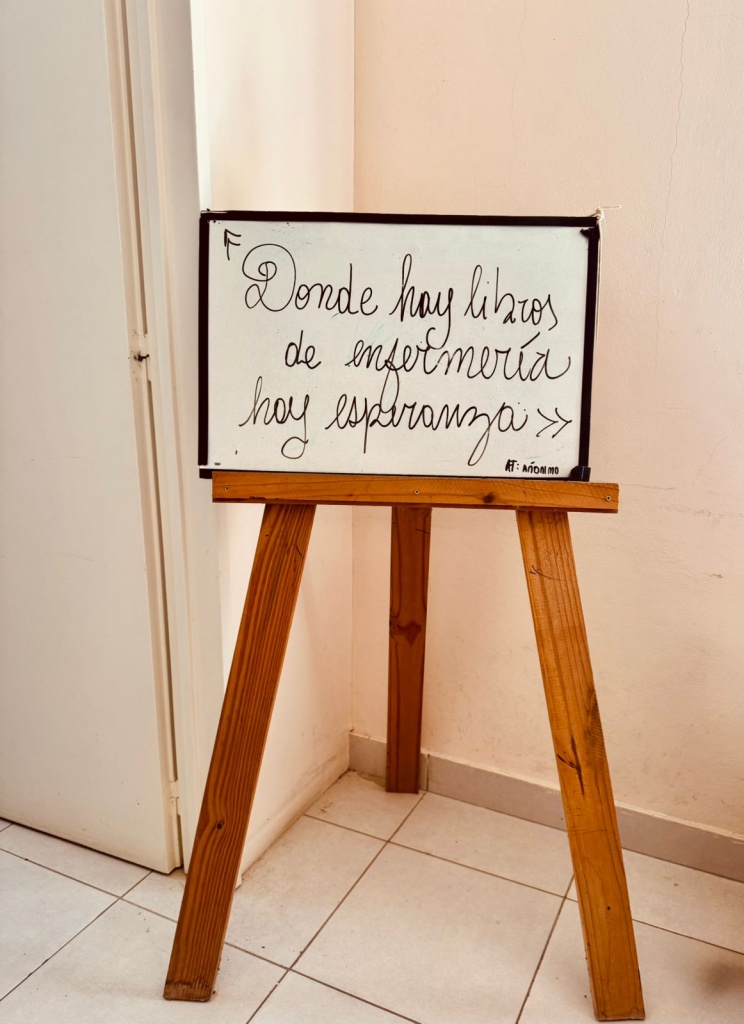 "Donde hay libros
de enfermería
hay esperanza »
AT: AÑONIMO